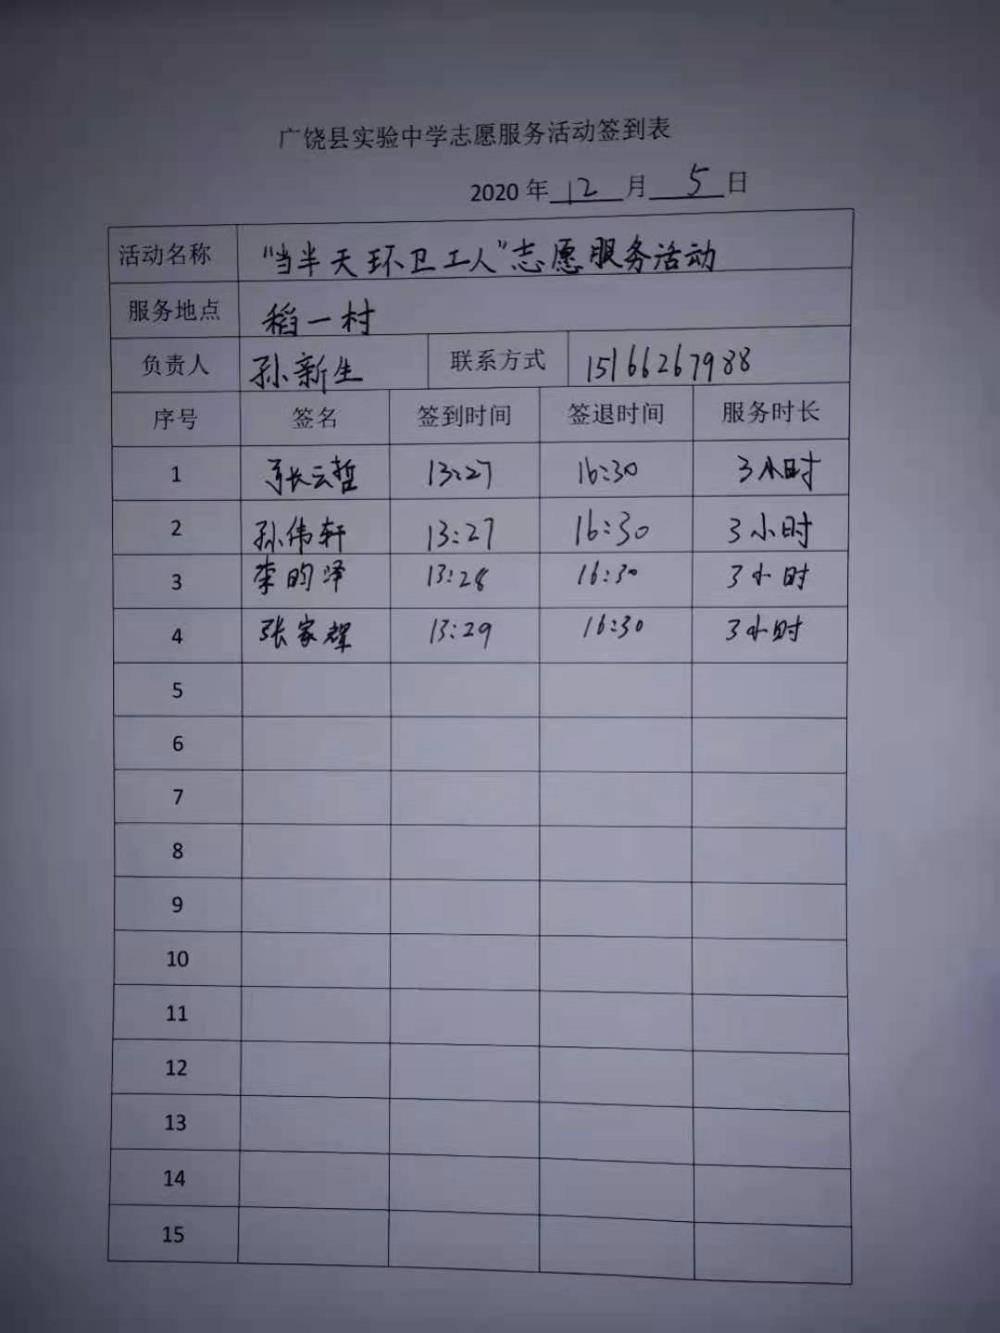 广饶县实验中学志愿服务活动签到表
2020 年 12 月 5 日
活动名称 "当半天环卫工人"志愿服务活动
服务地点 稻一村
负责人 孙新生 联系方式 15166267988
序号 签名 签到时间 签退时间 服务时长
1 张云哲 13:27 16:30 3小时
2 孙伟轩 13:27 16:30 3小时
3 李昀泽 13:28 16:30 3小时
4 张家犀 13:29 16:30 3小时
5
6
7
8
9
10
11
12
13
14
15